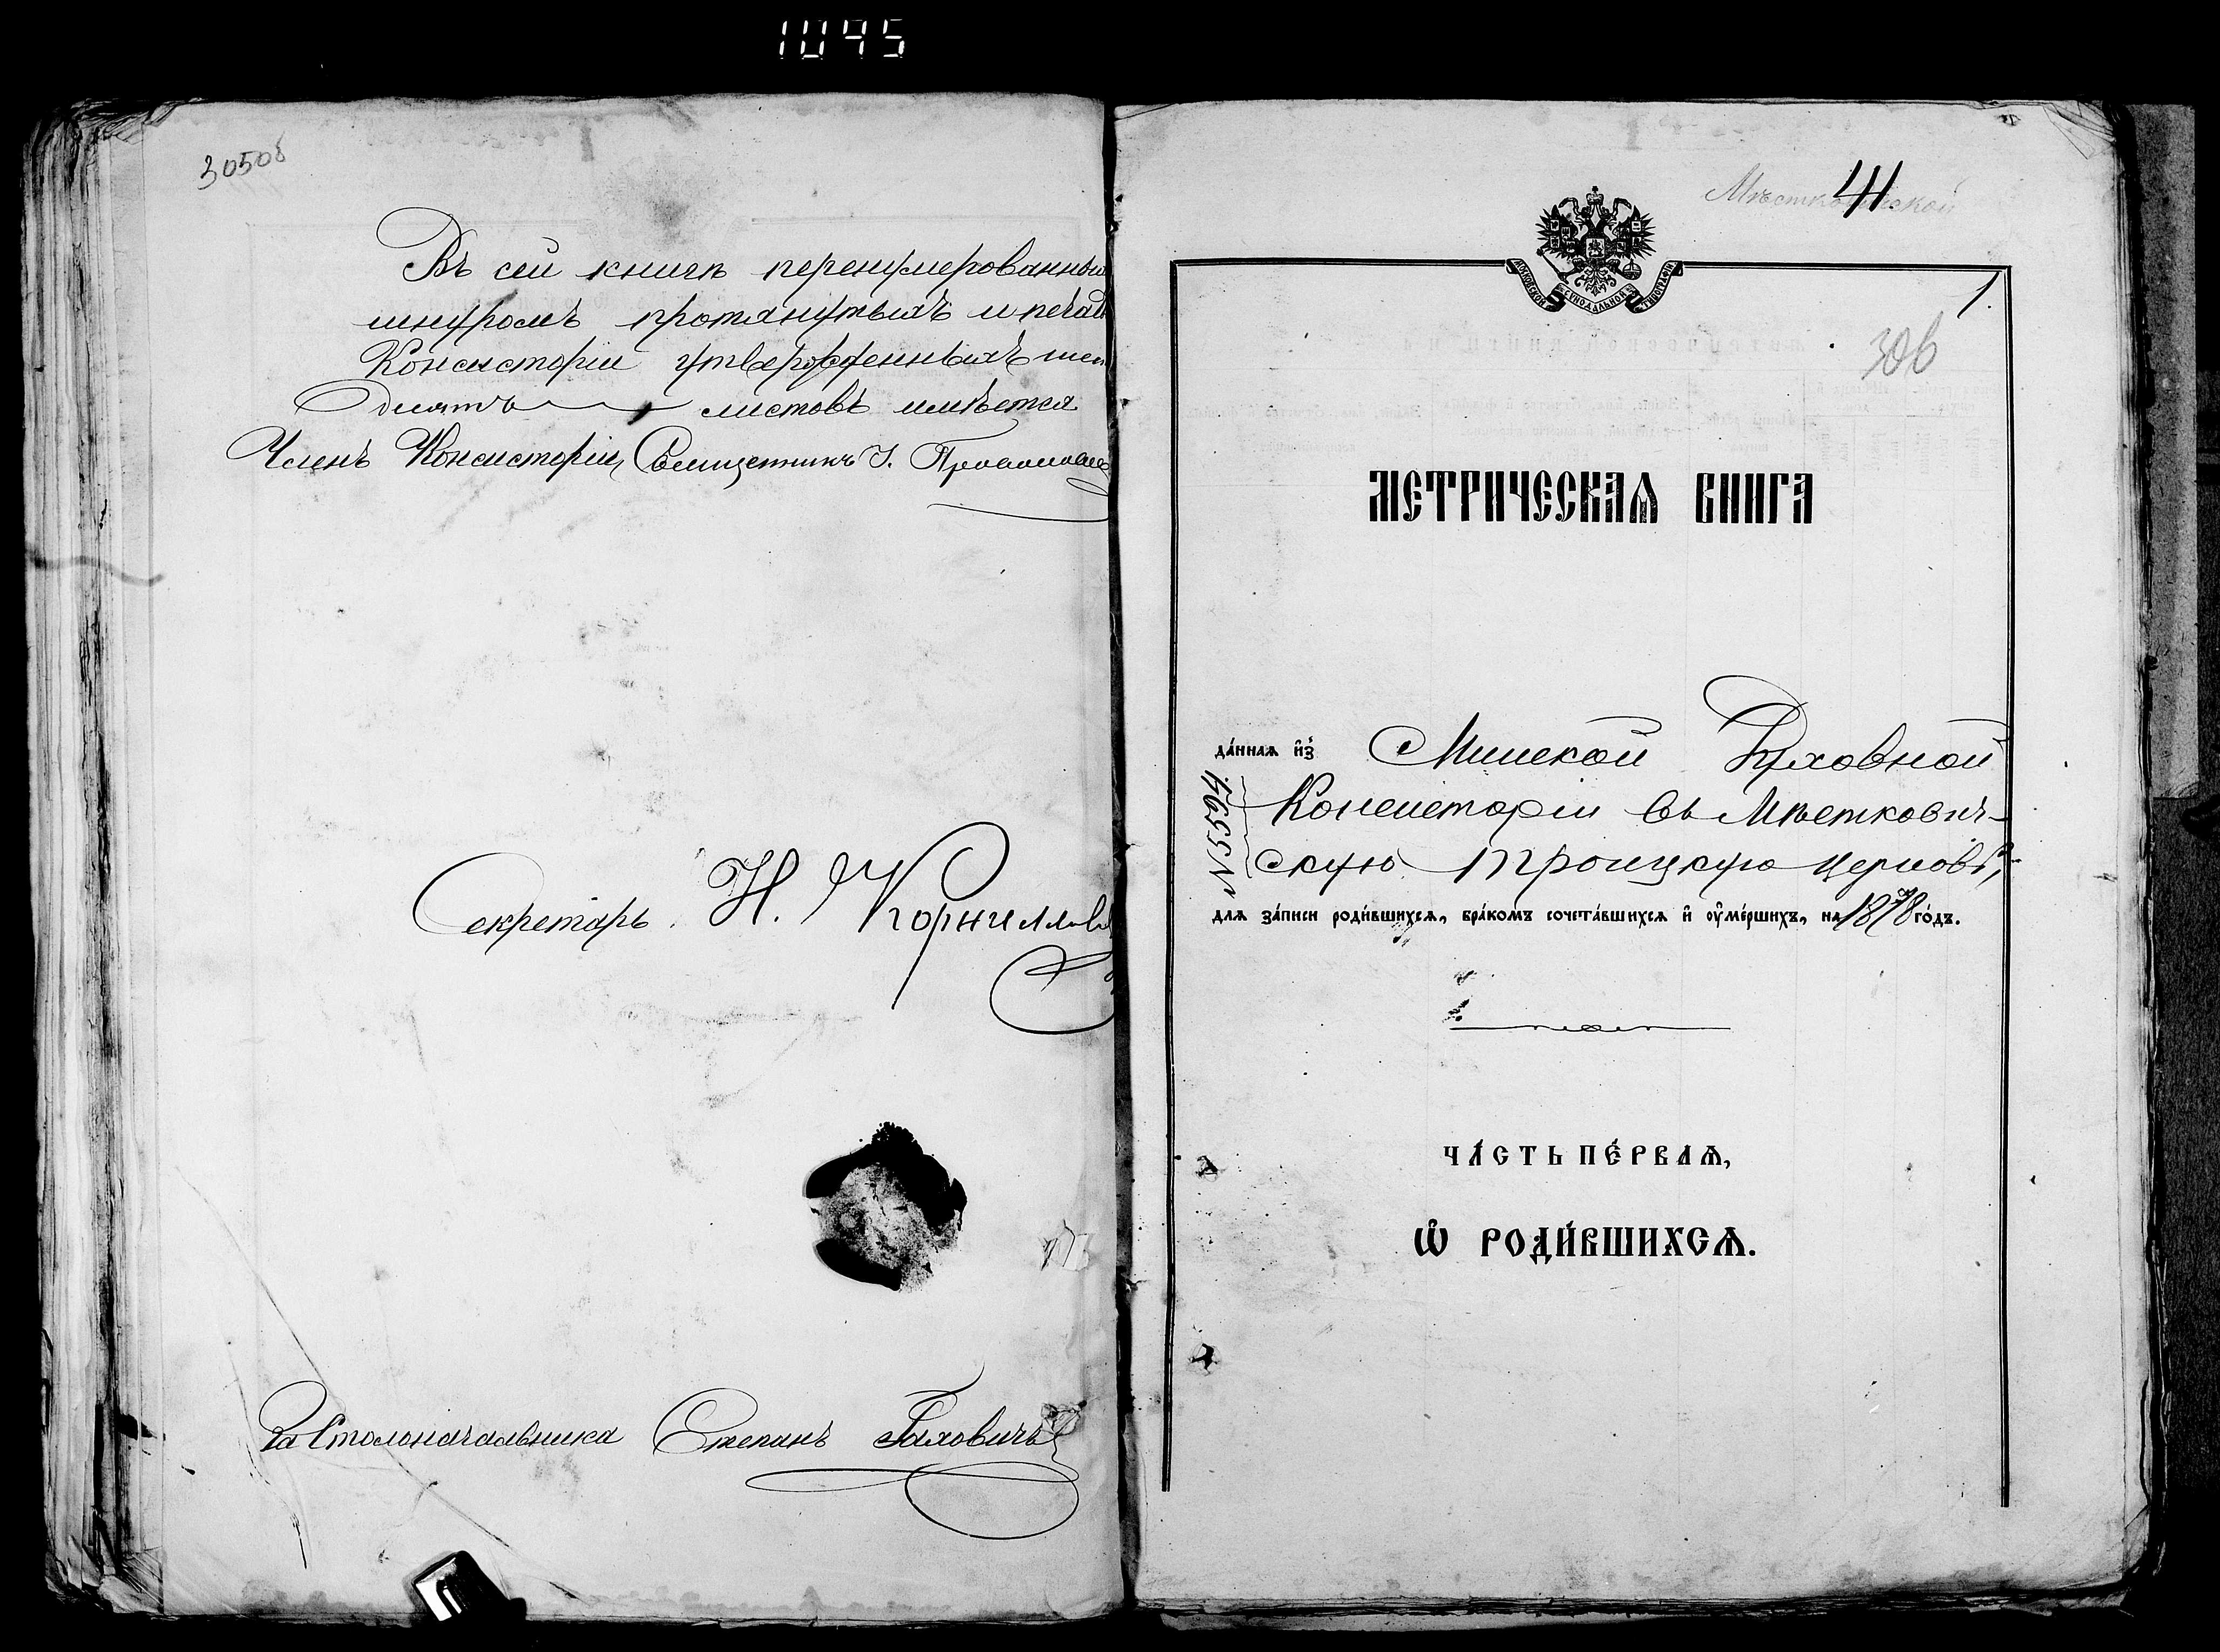 1045
305об
Въ сей книгѣ перенумерованныхъ
шнуромъ протянутыхъ и печатью
Консисторіи утвержденныхъ шесть
десятъ листовъ имѣется
Членъ Консисторіи, Священникъ І.
Секретарь Н. Корниллов
За Столоначальника Степанъ
Мѣстковичской
41
МОСКОВСКОЙ СѴНОДАЛЬНОЙ ТИПОГРАФІИ
1.
306
МЕТРИЧЕСКАѦ КНИГА
да́ннаѧ и҆з̾ Минской Духовной
Консисторіи въ Мѣсткович-
скую Троицкую церковь,
№ 5594
для за́писи роди́вшихсѧ, бра́комъ сочета́вшихсѧ и҆ ᲂу҆ме́ршихъ, на 1878 го́дъ.
ЧА́СТЬ ПЕ́РВАѦ,
Ѽ РОДИ́ВШИХСѦ.